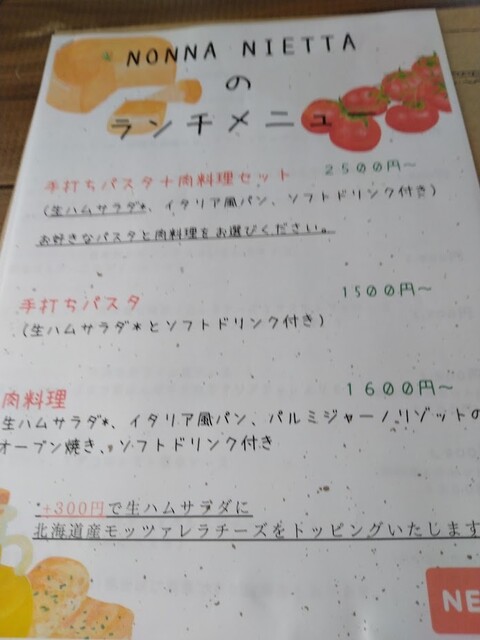 NONNA NIETTA
の
ランチメニュー
手打ちパスタ+肉料理セット 2500円~
(生ハムサラダ*、イタリア風パン、ソフトドリンク付き)
お好きなパスタと肉料理をお選びください。
手打ちパスタ 1500円~
(生ハムサラダ*とソフトドリンク付き)
肉料理 1600円~
生ハムサラダ*、イタリア風パン、パルミジャーノリゾットの
オーブン焼き、ソフトドリンク付き
*+300円で生ハムサラダに
北海道産モッツァレラチーズをトッピングいたします
NE